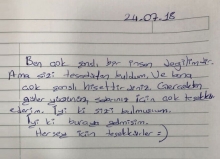 24.07.18
Ben çok şanslı bir insan değilimdir.
Ama sizi tesadüfen buldum. Ve bana
çok şanslı hissettirdiniz. Gerçekten
güler yüzünüz, sabrınız için çok teşekkür
ederim. İyi ki sizi bulmuşum.
İyi ki buraya gelmişim.
Herşey için teşekkürler =)